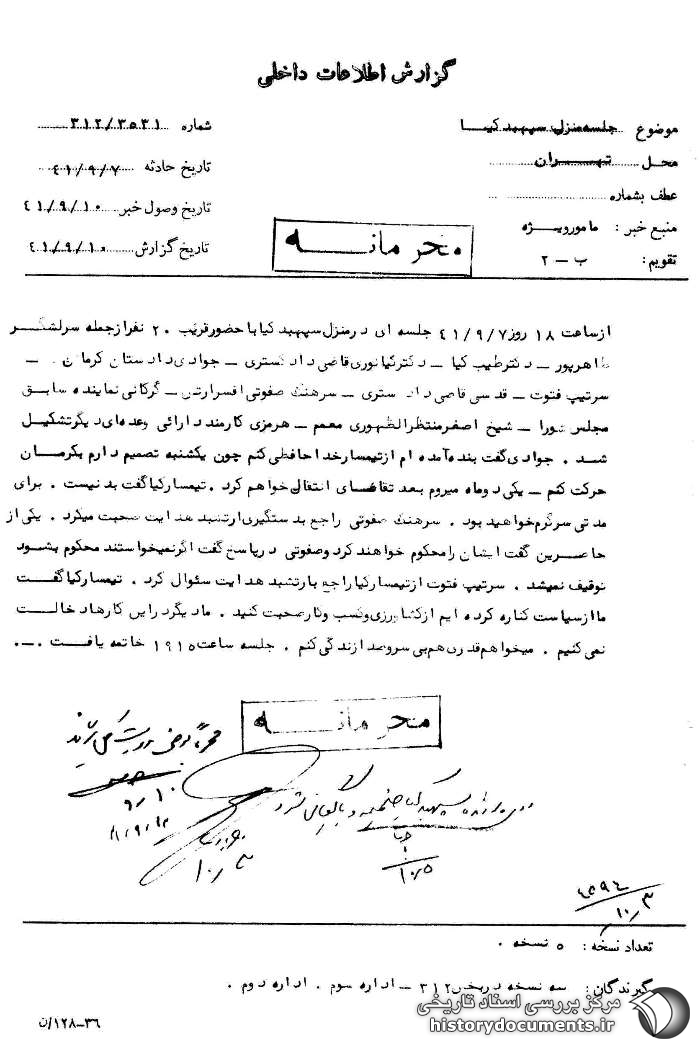 گزارش اطلاعات داخلی
موضوع جلسه منزل سپهبد کیا
شماره ۳۱۲/۳۵۳۱
محل تهران
تاریخ حادثه ۴۱/۹/۷
عطف بشماره
تاریخ وصول خبر ۴۱/۹/۱۰
منبع خبر : مامور ویژه
تاریخ گزارش ۴۱/۹/۱۰
تقویم : ب – ۲
محرمانه
از ساعت ۱۸ روز ۴۱/۹/۷ جلسه ای در منزل سپهبد کیا با حضور قریب ۲۰ نفر از جمله سرلشگر
طاهرپور – دکتر طیب کیا – دکتر کیانوری قاضی دادگستری – جوادی دادستان کرمان –
سرتیپ فتوت – قدسی قاضی دادگستری – سرهنگ صفوتی افسر ارتش – گرکانی نماینده سابق
مجلس شورا – شیخ اصغر منتظرالظهوری معمم – هرمزی کارمند دارائی وعده‌ای دیگر تشکیل
شد . جوادی گفت بنده آمده ام از تیمسار خداحافظی کنم چون یکشنبه تصمیم دارم بکرمان
حرکت کنم – یکی دو ماه میروم بعد تقاضای انتقال خواهم کرد . تیمسار کیا گفت بد نیست . برای
مدتی سرگرم خواهید بود . سرهنگ صفوتی راجع بدستگیری ارتشبد هدایت صحبت میکرد . یکی از
حاضرین گفت ایشان را محکوم خواهند کرد و صفوتی در پاسخ گفت اگر نمیخواستند محکوم بشود
توقیف نمیشد . سرتیپ فتوت از تیمسار کیا راجع بارتشبد هدایت سئوال کرد . تیمسار کیا گفت
ما از سیاست کناره کرده ایم از کشاورزی و کسب و کار صحبت کنید . ما دیگر در این کارها دخالت
نمی کنیم . میخواهم قدری هم بی سر و صدا زندگی کنم . جلسه ساعت ۱۹۱۵ خاتمه یافت .
محرمانه
۹/۱۰
۱۰/۳
۱۰/۵
۴۵۹۴
۱۰/۳
تعداد نسخه : ۵ نسخه .
گیرندگان : سه نسخه در بخش ۳۱۲ – اداره سوم . اداره دوم .
۳۶–۱۲۸/ن
مرکز بررسی اسناد تاریخی
historydocuments.ir